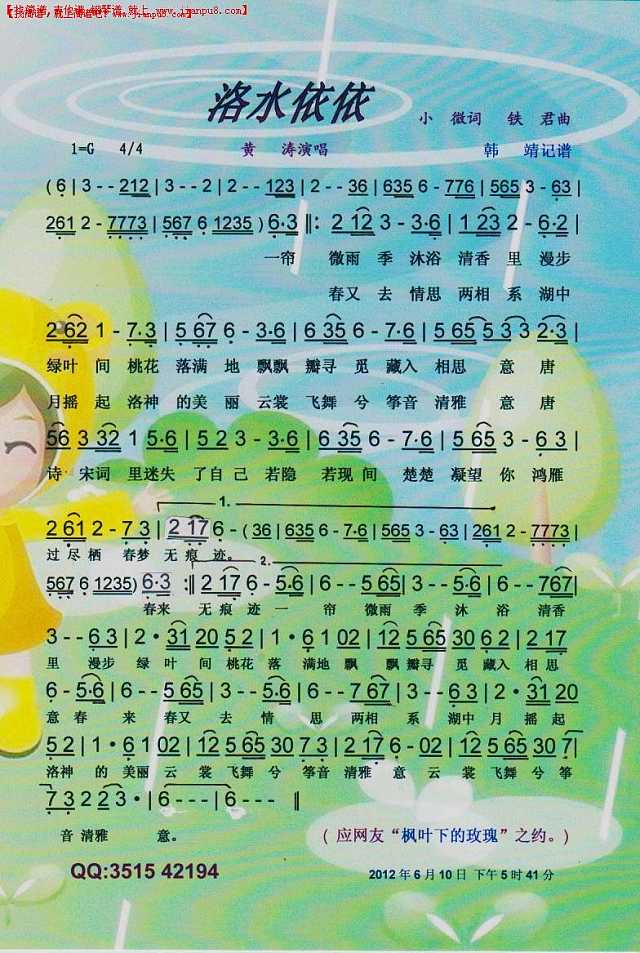 【找简谱,就上简谱吧! www.jianpu8.com】
洛水依依
小 微词 铁 君曲
1=G 4/4 黄 涛演唱 韩 靖记谱
(6|3--212|3--2|2--123|2--36|635 6-776|565 3-63|
261 2-7773|567 6 1235)6·3‖:2 12 3-3·6|1 23 2-6·2|
一帘 微雨 季 沐浴 清香 里 漫步
春又 去 情思 两相 系 湖中
2 62 1-7·3|5 67 6-3·6|6 35 6-7·6|5 65 5 3 3 2·3|
绿叶 间 桃花 落满 地 飘飘 瓣寻 觅 藏入 相思 意 唐
月摇 起 洛神 的美 丽 云裳 飞舞 兮 筝音 清雅 意 唐
56 3 32 1 5·6|5 2 3-3·6|6 35 6-7·6|5 65 3-6 3|
诗 宋词 里迷失 了自己 若隐 若现 间 楚楚 凝望 你 鸿雁
1.
2 61 2-7 3|2 17 6-(36|635 6-7·6|565 3-63|261 2-7773|
过尽栖 春梦 无痕 迹。
2.
567 6 1235)6·3:‖2 17 6-5·6|6--565|3--5·6|6--767|
春来 无痕 迹 一 帘 微雨 季 沐 浴 清香
3--6 3|2·31 20 5 2|1·6 1 02|12 5 65 30 6 2|2 17
里 漫步 绿 叶 间 桃花 落 满地 飘 飘瓣寻 觅 藏入 相思
6-5·6|6--565|3--5·6|6--7 67|3--6 2|2·31 20
意春 来 春又 去 情 思 两相 系 湖中 月 摇起
5 2|1·6 1 02|12 5 65 30 7 3|2 17 6-02|12 5 65 30 7|
洛神 的 美丽 云 裳 飞舞 兮 筝音 清雅 意 云裳 飞舞 兮 筝
7 3 22 23·|6---|6---‖
音 清雅 意。
(应网友“枫叶下的玫瑰”之约。)
QQ:3515 42194
2012年6月10日下午5时41分